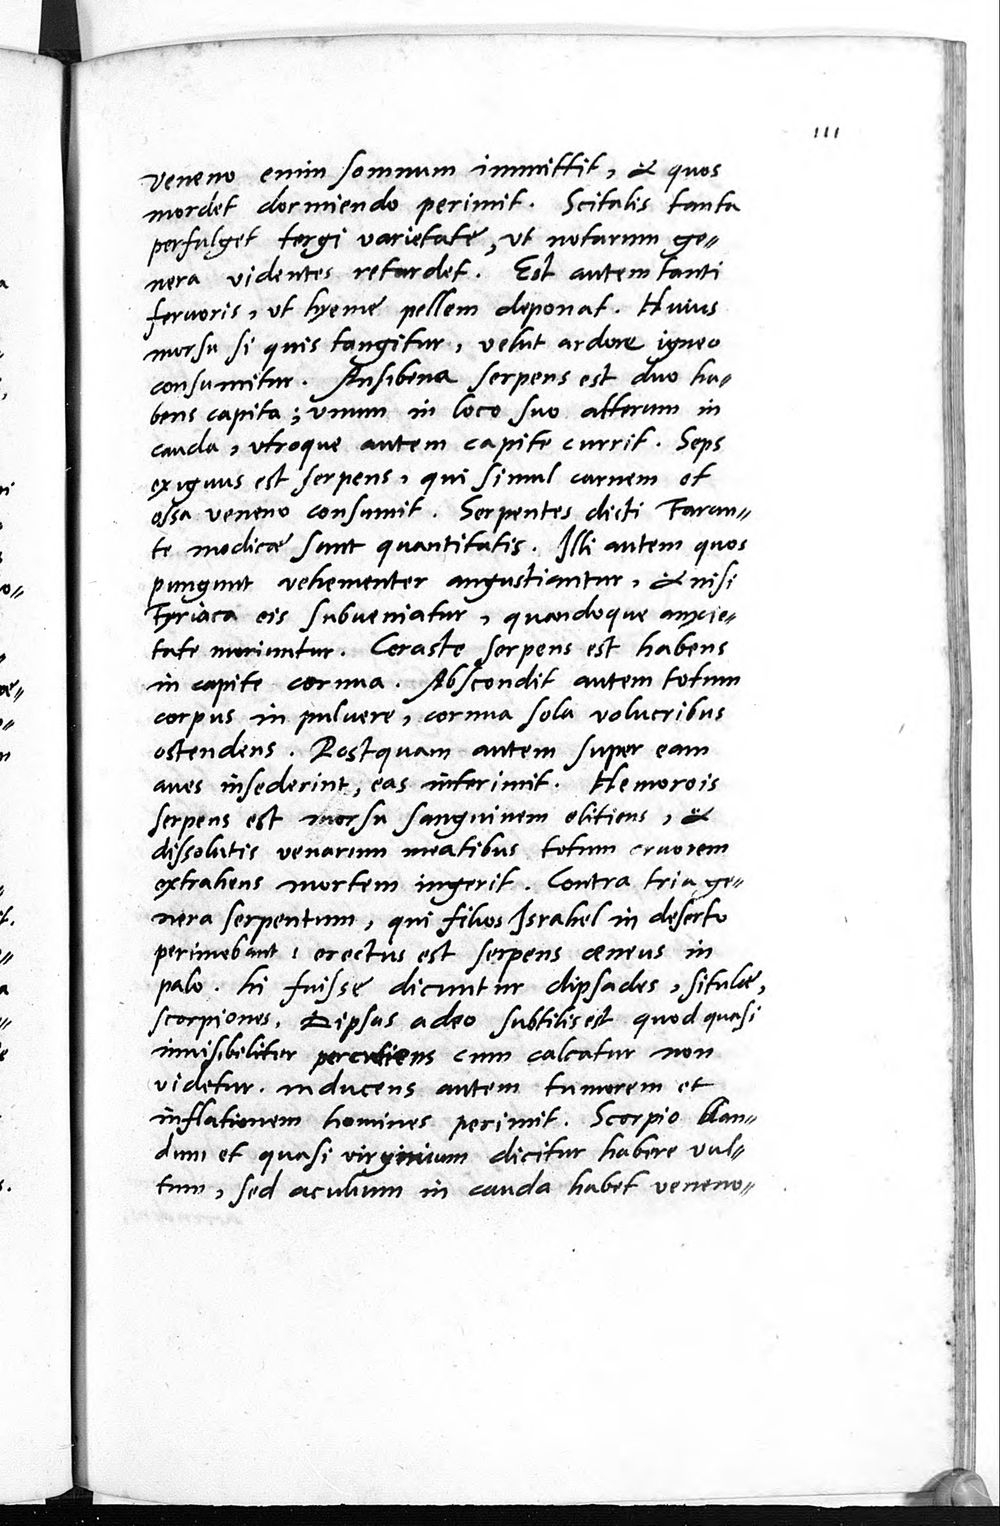 111
veneno enim somnum inmittit, & quos
mordet dormiendo perimit. Scitalis tanta
perfulget tergi varietate, ut notarum ge„
nera videntes retardet. Est autem tanti
fervoris, ut hyeme pellem deponat. Huius
morsu si quis tangitur, velut ardore igneo
consumitur. Ansibena serpens est duo ha„
bens capita; unum in loco suo alterum in
cauda, utroque autem capite currit. Seps
exiguus est serpens, qui simul carnem et
ossa veneno consumit. Serpentes dicti Taran„
te modicæ sunt quantitatis. Illi autem quos
pungunt vehementer angustiantur, & nisi
Tyriaca eis subveniatur, quandoque anxie„
tate moriuntur. Ceraste serpens est habens
in capite cornua. Abscondit autem totum
corpus in pulvere, cornua sola volucribus
ostendens. Postquam autem super eam
aves insederint, eas interimit. Hemorois
serpens est morsu sanguinem elitiens, &
dissolutis venarum meatibus totum cruorem
extrahens mortem ingerit. Contra tria ge„
nera serpentum, qui filios Israhel in deserto
perimebant, erectus est serpens æneus in
palo. hi fuisse dicuntur dipsades, situlæ,
scorpiones. Dipsas adeo subtilis est quod quasi
invisibiliter percutiens cum calcatur non
videtur. inducens autem tumorem et
inflationem homines perimit. Scorpio blan„
dum et quasi virginium dicitur habere vul„
tum, sed aculium in cauda habet veneno„